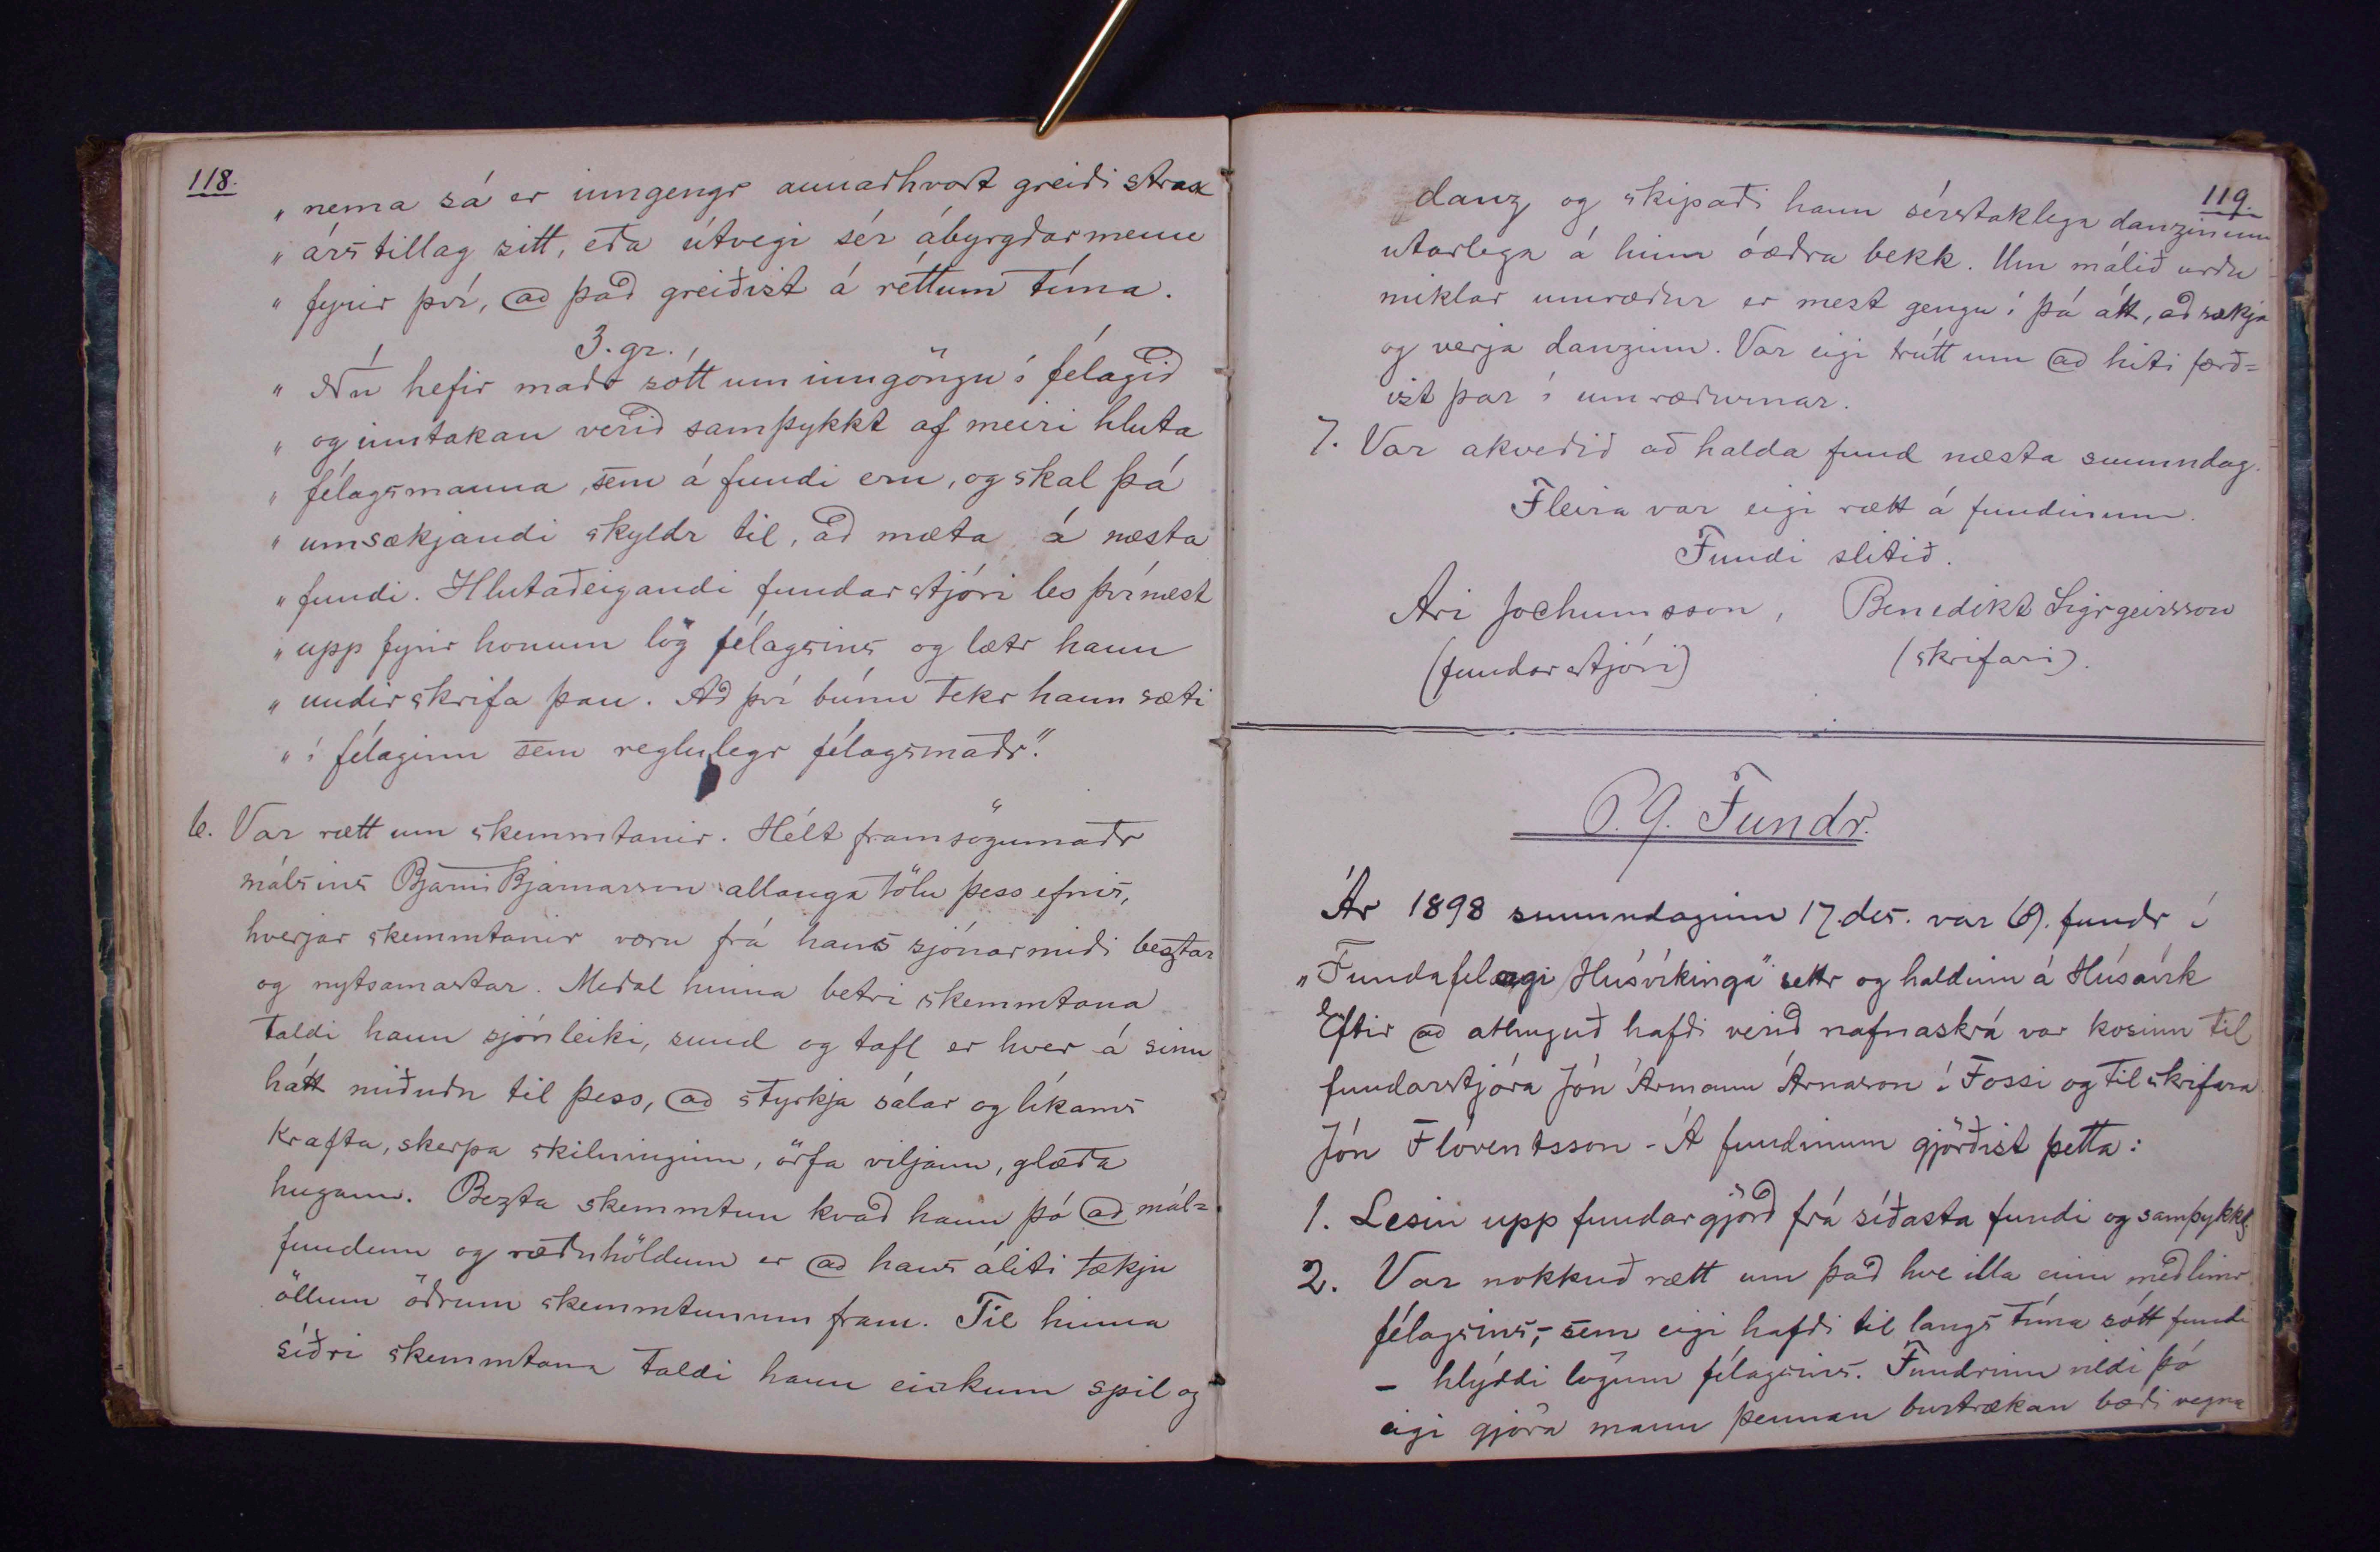 118.
„ nema sá er inngengr annaðhvort greiði strax
„ árstillag sitt, eða útvegi sér ábyrgðarmenn
„ fyrir því, að það greiðist á réttum tíma.
3. gr.
„ Nú hefir maðr sótt um inngöngu í félagið
„ og inntakan verið samþykkt af meiri hluta
„ félagsmanna, sem á fundi eru, og skal þá
„ umsækjandi skyldr til, að mæta á næsta
„ fundi. Hlutaðeigandi fundarstjóri les þvínæst
„ upp fyrir honum lög félagsins og lætr hann
„ undirskrifa þau. Að því búnu tekr hann sæti
„ í félaginu sem reglulegr félagsmaðr."
6. Var rætt um skemmtanir. Hélt framsögumaðr
málsins Bjarni Bjarnarson allanga tölu þess efnis,
hverjar skemmtanir væru frá hans sjónarmiði beztar
og nytsamastar. Meðal hinna betri skemmtana
taldi hann sjónleiki, sund og tafl er hver á sinn
hátt miðuðu til þess, að styrkja sálar og líkams
krafta, skerpa skilninginn, örfa viljann, glæða
hugann. Bezta skemmtun kvað hann þó að mál=
fundum og ræðuhöldum er að hans áliti tækju
öllum öðrum skemmtunum fram. Til hinna
síðri skemmtana taldi hann einkum spil og
119.
danz og skipaði hann sérstaklega danzinum
utarlega á hinn óæðra bekk. Um málið urðu
miklar umræður er mest gengu í þá átt, að sækja
og verja danzinn. Var eigi trútt um að hiti færð=
ist þar í umræðurnar.
7. Var akveðið að halda fund næsta sunnudag.
Fleira var eigi rætt á fundinum.
Fundi slitið.
Ari Jochumsson, Benedikt Sigrgeirsson
(fundarstjóri) (skrifari).
69. Fundr.
Ár 1898 sunnudaginn 17. des. var 69. fundr í
„Fundafelagi Húsvíkinga" settr og haldinn á Húsavík
Eftir að athuguð hafði verið nafnaskrá var kosinn til
fundarstjóra Jón Ármann Árnason í Fossi og til skrifara
Jón Flóventsson - Á fundinum gjörðist þetta:
1. Lesin upp fundargjörð frá síðasta fundi og samþykkt
2. Var nokkuð rætt um það hve illa einn meðlimr
félagsins, - sem eigi hafði til langs tíma sótt fundi
- hlýddi lögum félagsins. Fundrinn vildi þó
eigi gjöra mann þennan burtrækan bæði vegna